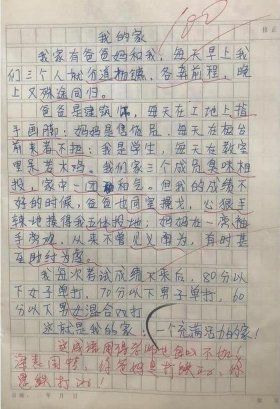 100
我的家
我家有爸爸妈和我，每天早上我
们三个人就分道扬镳，各奔前程，晚
上又殊途同归。
爸爸是建筑师，每天在工地上指
手画脚；妈妈是售货员，每天在柜台
前来者不拒；我是学生，每天在教室
里呆若木鸡。我们家三个成员臭味相
投，家中一团和气。但我的成绩不
好的时候，爸爸也同室操戈，心狠手
辣地揍得我五体投地；妈妈在一旁袖
手旁观，从来不曾见义勇为，有时甚
至助纣为虐。
我每次考试成绩下来后，80分以
下女子单打，70分以下男子单打，60
分以下男女混合双打
这就是我的家，一个充满活力的家！
这成语用得